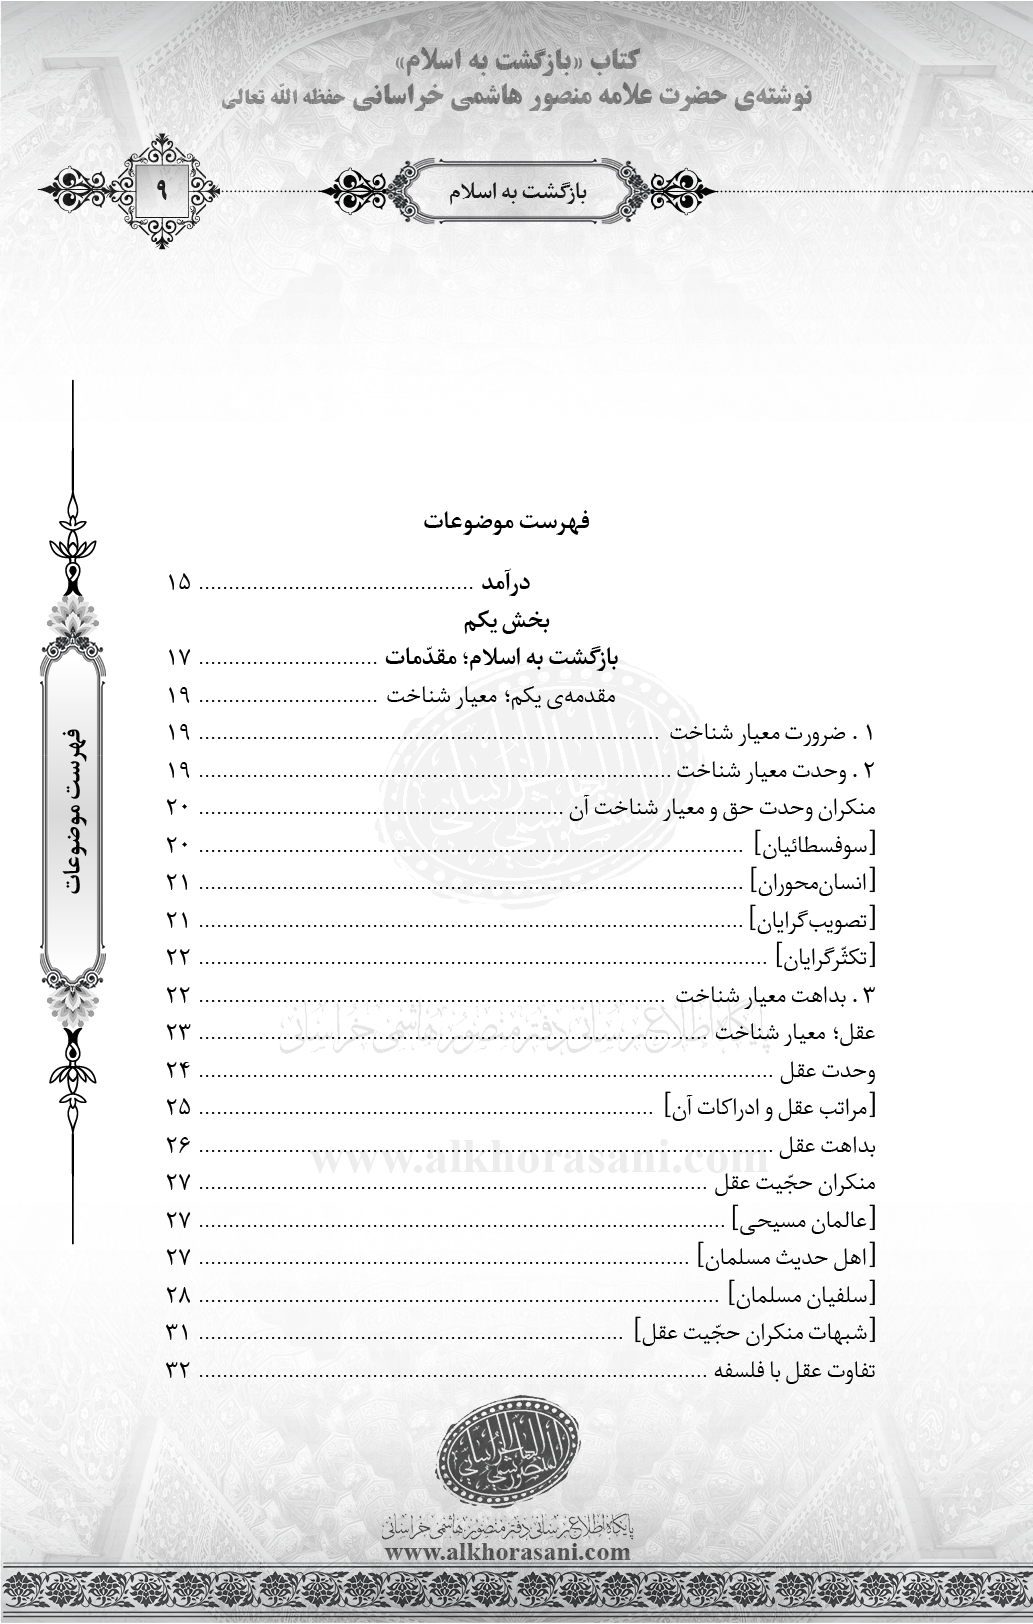 کتاب «بازگشت به اسلام»
نوشته‌ی حضرت علامه منصور هاشمی خراسانی حفظه الله تعالی
بازگشت به اسلام
۹
فهرست موضوعات
درآمد ........ ۱۵
بخش یکم
بازگشت به اسلام؛ مقدّمات ........ ۱۷
مقدمه‌ی یکم؛ معیار شناخت ........ ۱۹
۱ . ضرورت معیار شناخت ........ ۱۹
۲ . وحدت معیار شناخت ........ ۱۹
منکران وحدت حق و معیار شناخت آن ........ ۲۰
[سوفسطائیان] ........ ۲۰
[انسان‌محوران] ........ ۲۱
[تصویب‌گرایان] ........ ۲۱
[تکثّرگرایان] ........ ۲۲
۳ . بداهت معیار شناخت ........ ۲۲
عقل؛ معیار شناخت ........ ۲۳
وحدت عقل ........ ۲۴
[مراتب عقل و ادراکات آن] ........ ۲۵
بداهت عقل ........ ۲۶
منکران حجّیت عقل ........ ۲۷
[عالمان مسیحی] ........ ۲۷
[اهل حدیث مسلمان] ........ ۲۷
[سلفیان مسلمان] ........ ۲۸
[شبهات منکران حجّیت عقل] ........ ۳۱
تفاوت عقل با فلسفه ........ ۳۲
فهرست موضوعات
پایگاه اطلاع‌رسانی دفتر منصور هاشمی خراسانی
www.alkhorasani.com
المنصور الهاشمی الخراسانی
پایگاه اطلاع‌رسانی دفتر منصور هاشمی خراسانی
www.alkhorasani.com